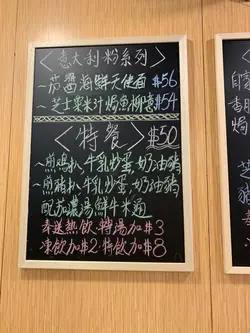 〈意大利粉系列〉
~茄醬海鮮天使面 $56
~芝士粟米汁焗魚柳意 $54
〈特餐〉 $50
~煎鸡扒、牛乳炒蛋、奶油豬
~煎豬扒、牛乳炒蛋、奶油豬
配茄濃湯鮮牛米通
奉送热饮、轉湯加$3
凍飲加$2、特飲加$8
自家
香